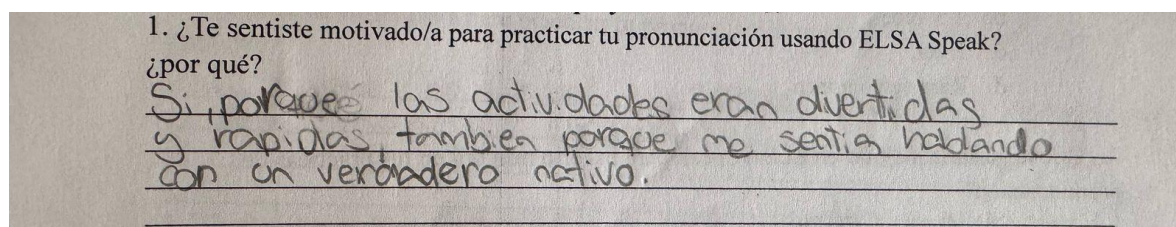 1. ¿Te sentiste motivado/a para practicar tu pronunciación usando ELSA Speak?
¿por qué?
Si, porque las actividades eran divertidas
y rapidas, tambien porque me sentia hablando
con un verdadero nativo.